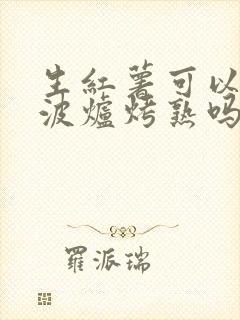 生紅薯可以
波爐烤熟吗
羅派瑞